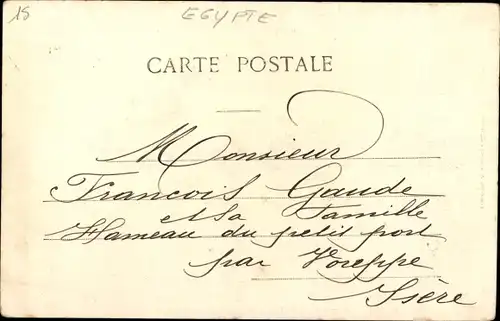 15 EGYPTE
CARTE POSTALE
Monsieur
Francois Gaude
et sa Famille
Hameau du petit port
par Voreppe
Isère